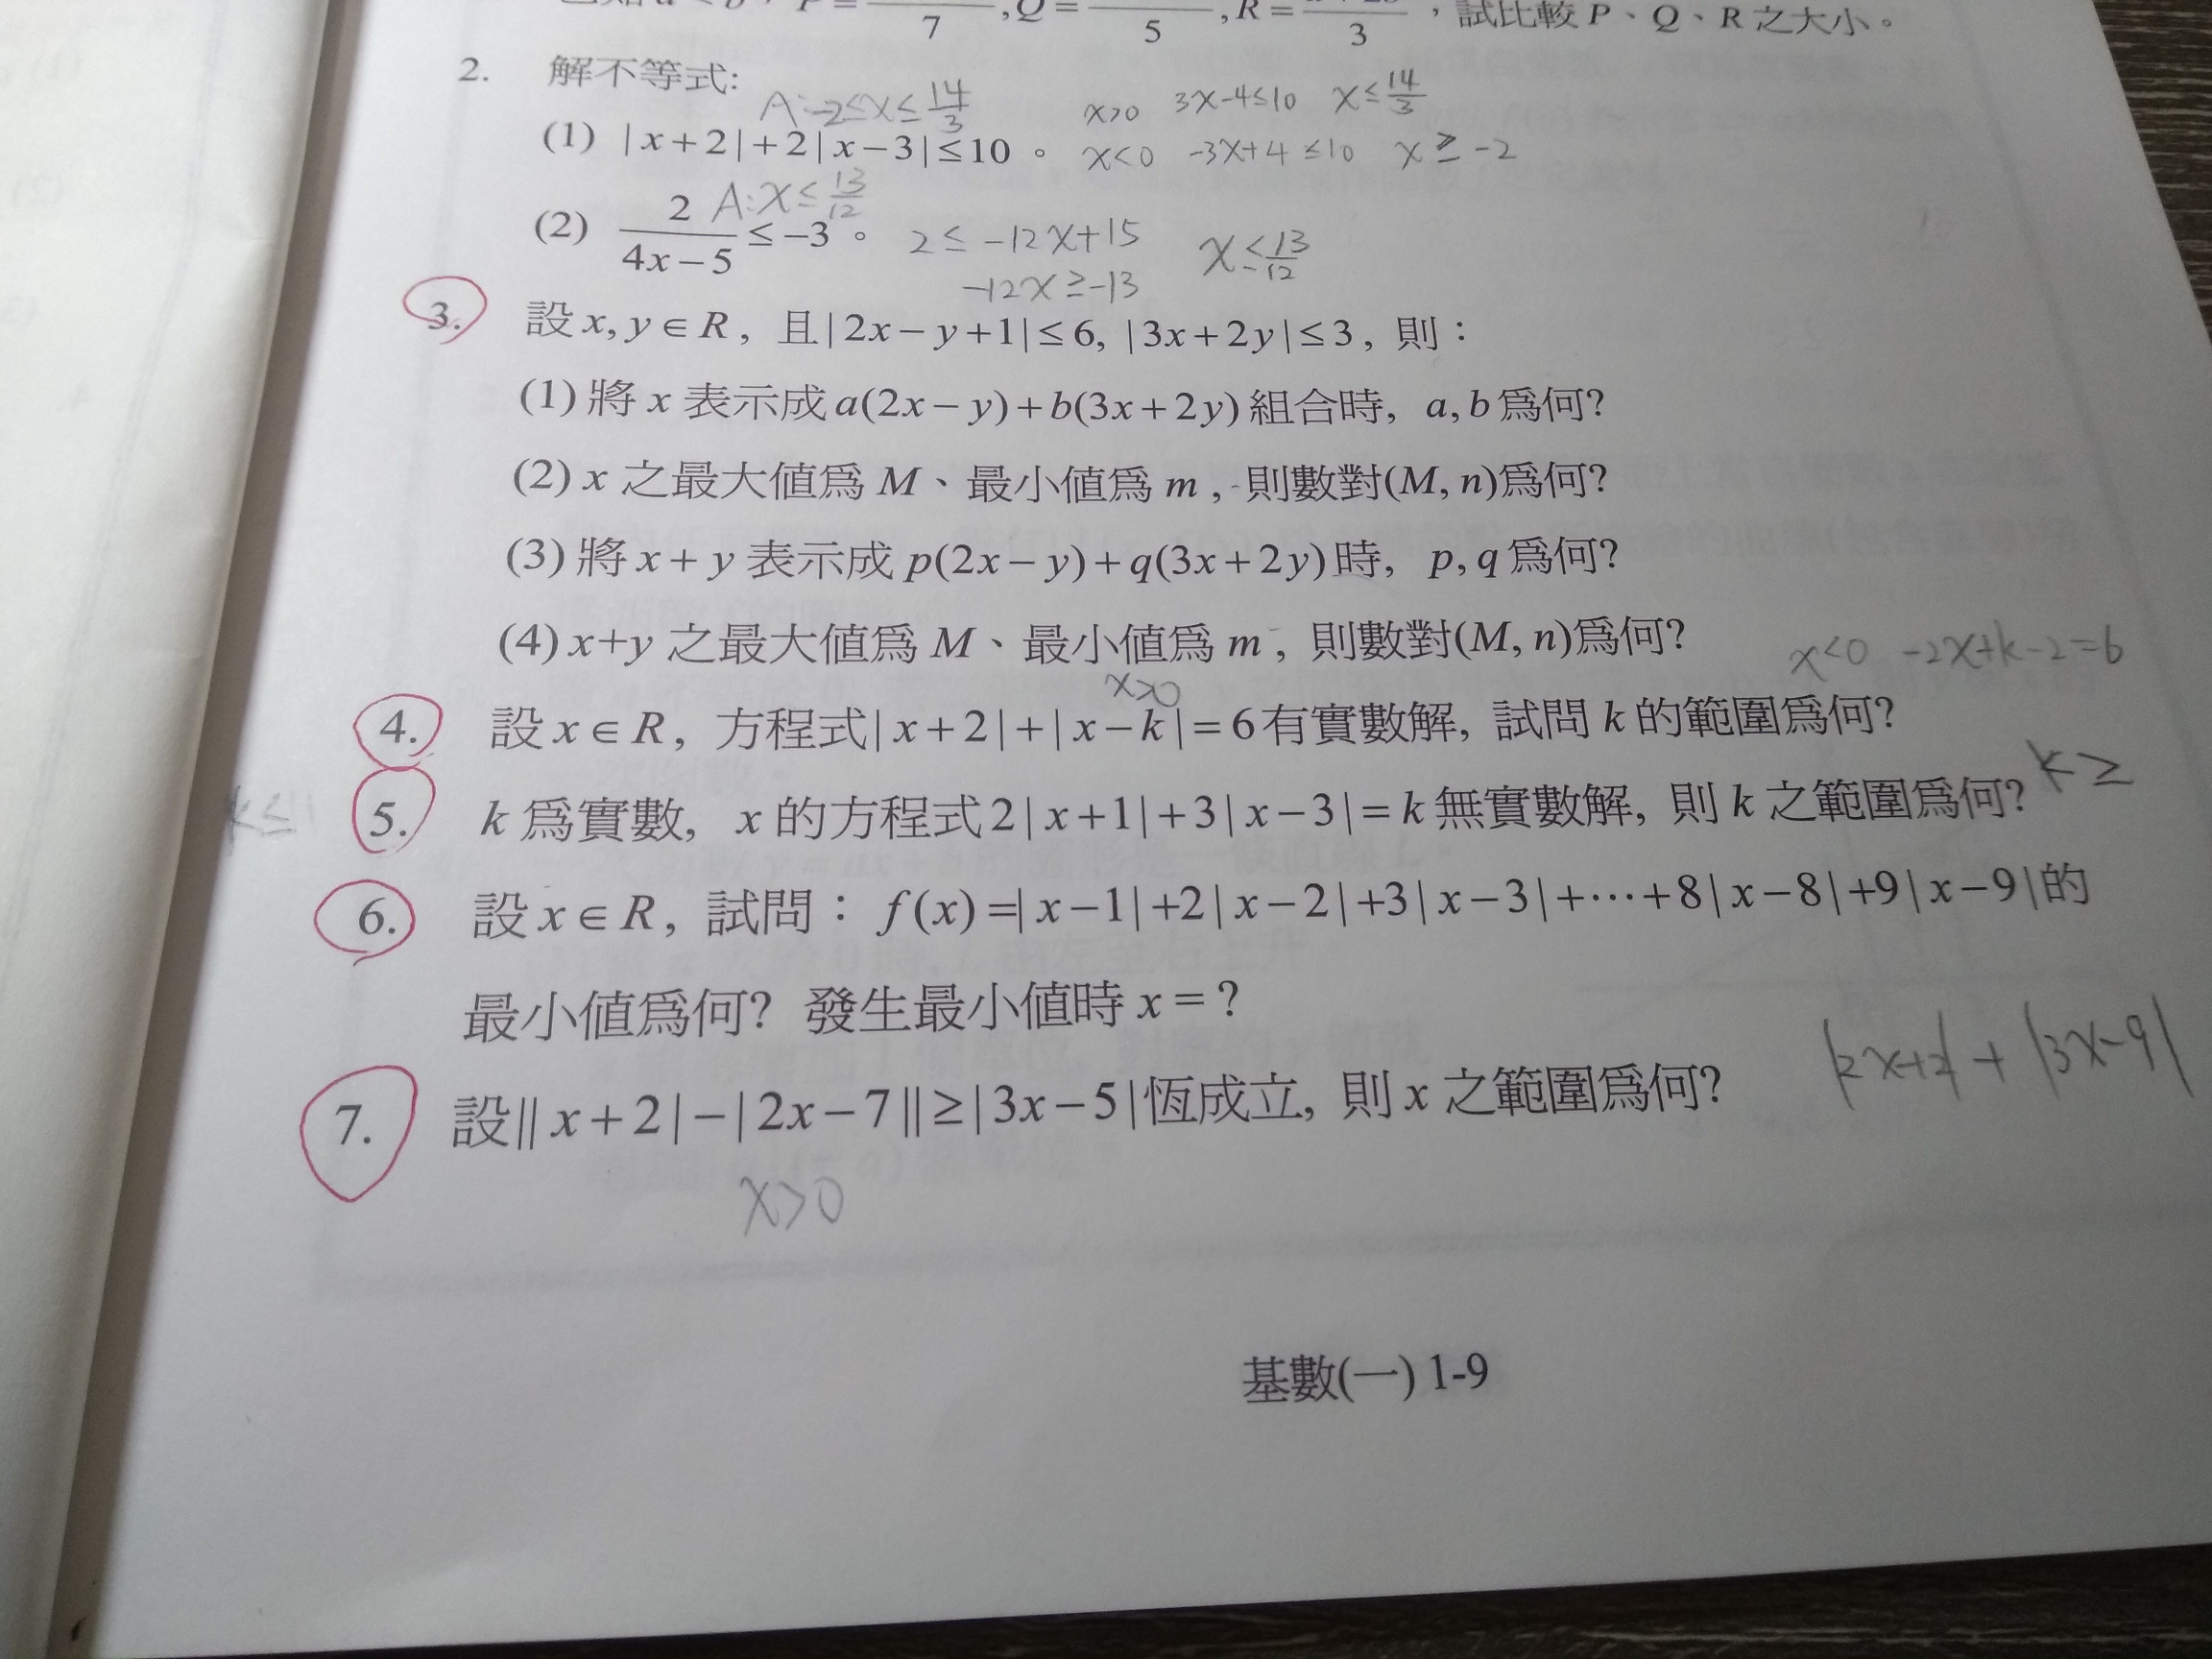 7 , Q = 5 , R = 3 ，試比較 P、Q、R 之大小。
2. 解不等式:
A: -2≤x≤14/3 x>0 3x-4≤10 x≤14/3
(1) |x+2|+2|x-3|≤10。 x<0 -3x+4≤10 x≥-2
A: x≤13/12
(2) 2/(4x-5) ≤ -3。 2≤-12x+15 x≤13/12
-12x≥-13
3. 設 x, y∈R, 且|2x-y+1|≤6, |3x+2y|≤3, 則：
(1) 將 x 表示成 a(2x-y)+b(3x+2y) 組合時, a, b 爲何?
(2) x 之最大值爲 M、最小值爲 m, 則數對(M, n)爲何?
(3) 將 x+y 表示成 p(2x-y)+q(3x+2y) 時, p, q 爲何?
(4) x+y 之最大值爲 M、最小值爲 m, 則數對(M, n)爲何?
x>0 x<0 -2x+k-2=6
4. 設 x∈R, 方程式|x+2|+|x-k|=6有實數解, 試問 k 的範圍爲何?
k≥
5. k 爲實數, x 的方程式 2|x+1|+3|x-3|=k 無實數解, 則 k 之範圍爲何?
6. 設 x∈R, 試問：f(x)=|x-1|+2|x-2|+3|x-3|+⋯+8|x-8|+9|x-9|的
最小值爲何? 發生最小值時 x=?
|2x+2|+|3x-9|
7. 設||x+2|-|2x-7||≥|3x-5|恆成立, 則 x 之範圍爲何?
x>0
基數(一) 1-9